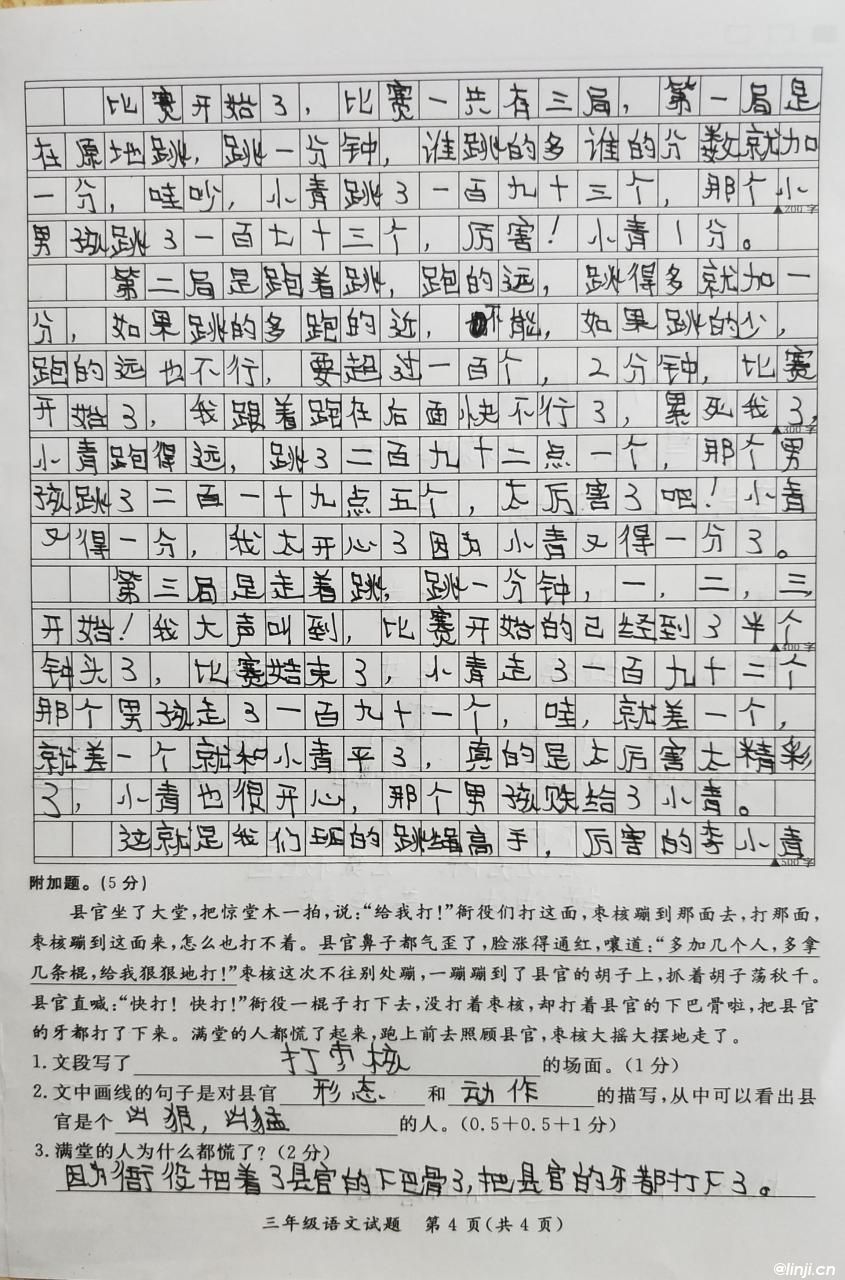 比赛开始了，比赛一共有三局，第一局是
在原地跳，跳一分钟，谁跳的多谁的分数就加
一分，哇吵，小青跳了一百九十三个，那个小
▲200字
男孩跳了一百七十三个，厉害！小青1分。
第二局是跑着跳，跑的远，跳得多就加一
分，如果跳的多跑的近，不能，如果跳的少，
跑的远也不行，要超过一百个，2分钟，比赛
开始了，我跟着跑在后面快不行了，累死我了，
▲300字
小青跑得远，跳了二百九十二点一个，那个男
孩跳了二百一十九点五个，太厉害了吧！小青
又得一分，我太开心了因为小青又得一分了。
第三局是走着跳，跳一分钟，一，二，三，
开始！我大声叫到，比赛开始的已经到了半个
▲400字
钟头了，比赛结束了，小青走了一百九十二个
那个男孩走了一百九十一个，哇，就差一个，
就差一个就和小青平了，真的是太厉害太精彩
了，小青也很开心，那个男孩败给了小青。
这就是我们班的跳绳高手，厉害的李小青
▲500字
附加题。(5分)
县官坐了大堂，把惊堂木一拍，说：“给我打！”衙役们打这面，枣核蹦到那面去，打那面，
枣核蹦到这面来，怎么也打不着。县官鼻子都气歪了，脸涨得通红，嚷道：“多加几个人，多拿
几条棍，给我狠狠地打！”枣核这次不往别处蹦，一蹦蹦到了县官的胡子上，抓着胡子荡秋千。
县官直喊：“快打！快打！”衙役一棍子打下去，没打着枣核，却打着县官的下巴骨啦，把县官
的牙都打了下来。满堂的人都慌了起来，跑上前去照顾县官，枣核大摇大摆地走了。
1. 文段写了打枣核的场面。(1分)
2. 文中画线的句子是对县官形态和动作的描写，从中可以看出县
官是个凶狠，凶猛的人。(0.5+0.5+1分)
3. 满堂的人为什么都慌了？(2分)
因为衙役把着了县官的下巴骨了，把县官的牙都打下了。
三年级语文试题 第4页(共4页)
@linji.cn